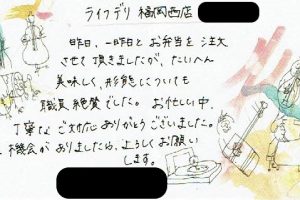 ライフデリ 福岡西店
昨日、一昨日とお弁当を注文
させて頂きましたが、たいへん
美味しく、形態についても
職員絶賛でした。お忙しい中、
丁寧なご対応ありがとうございました。
機会がありましたら、よろしくお願い
します。